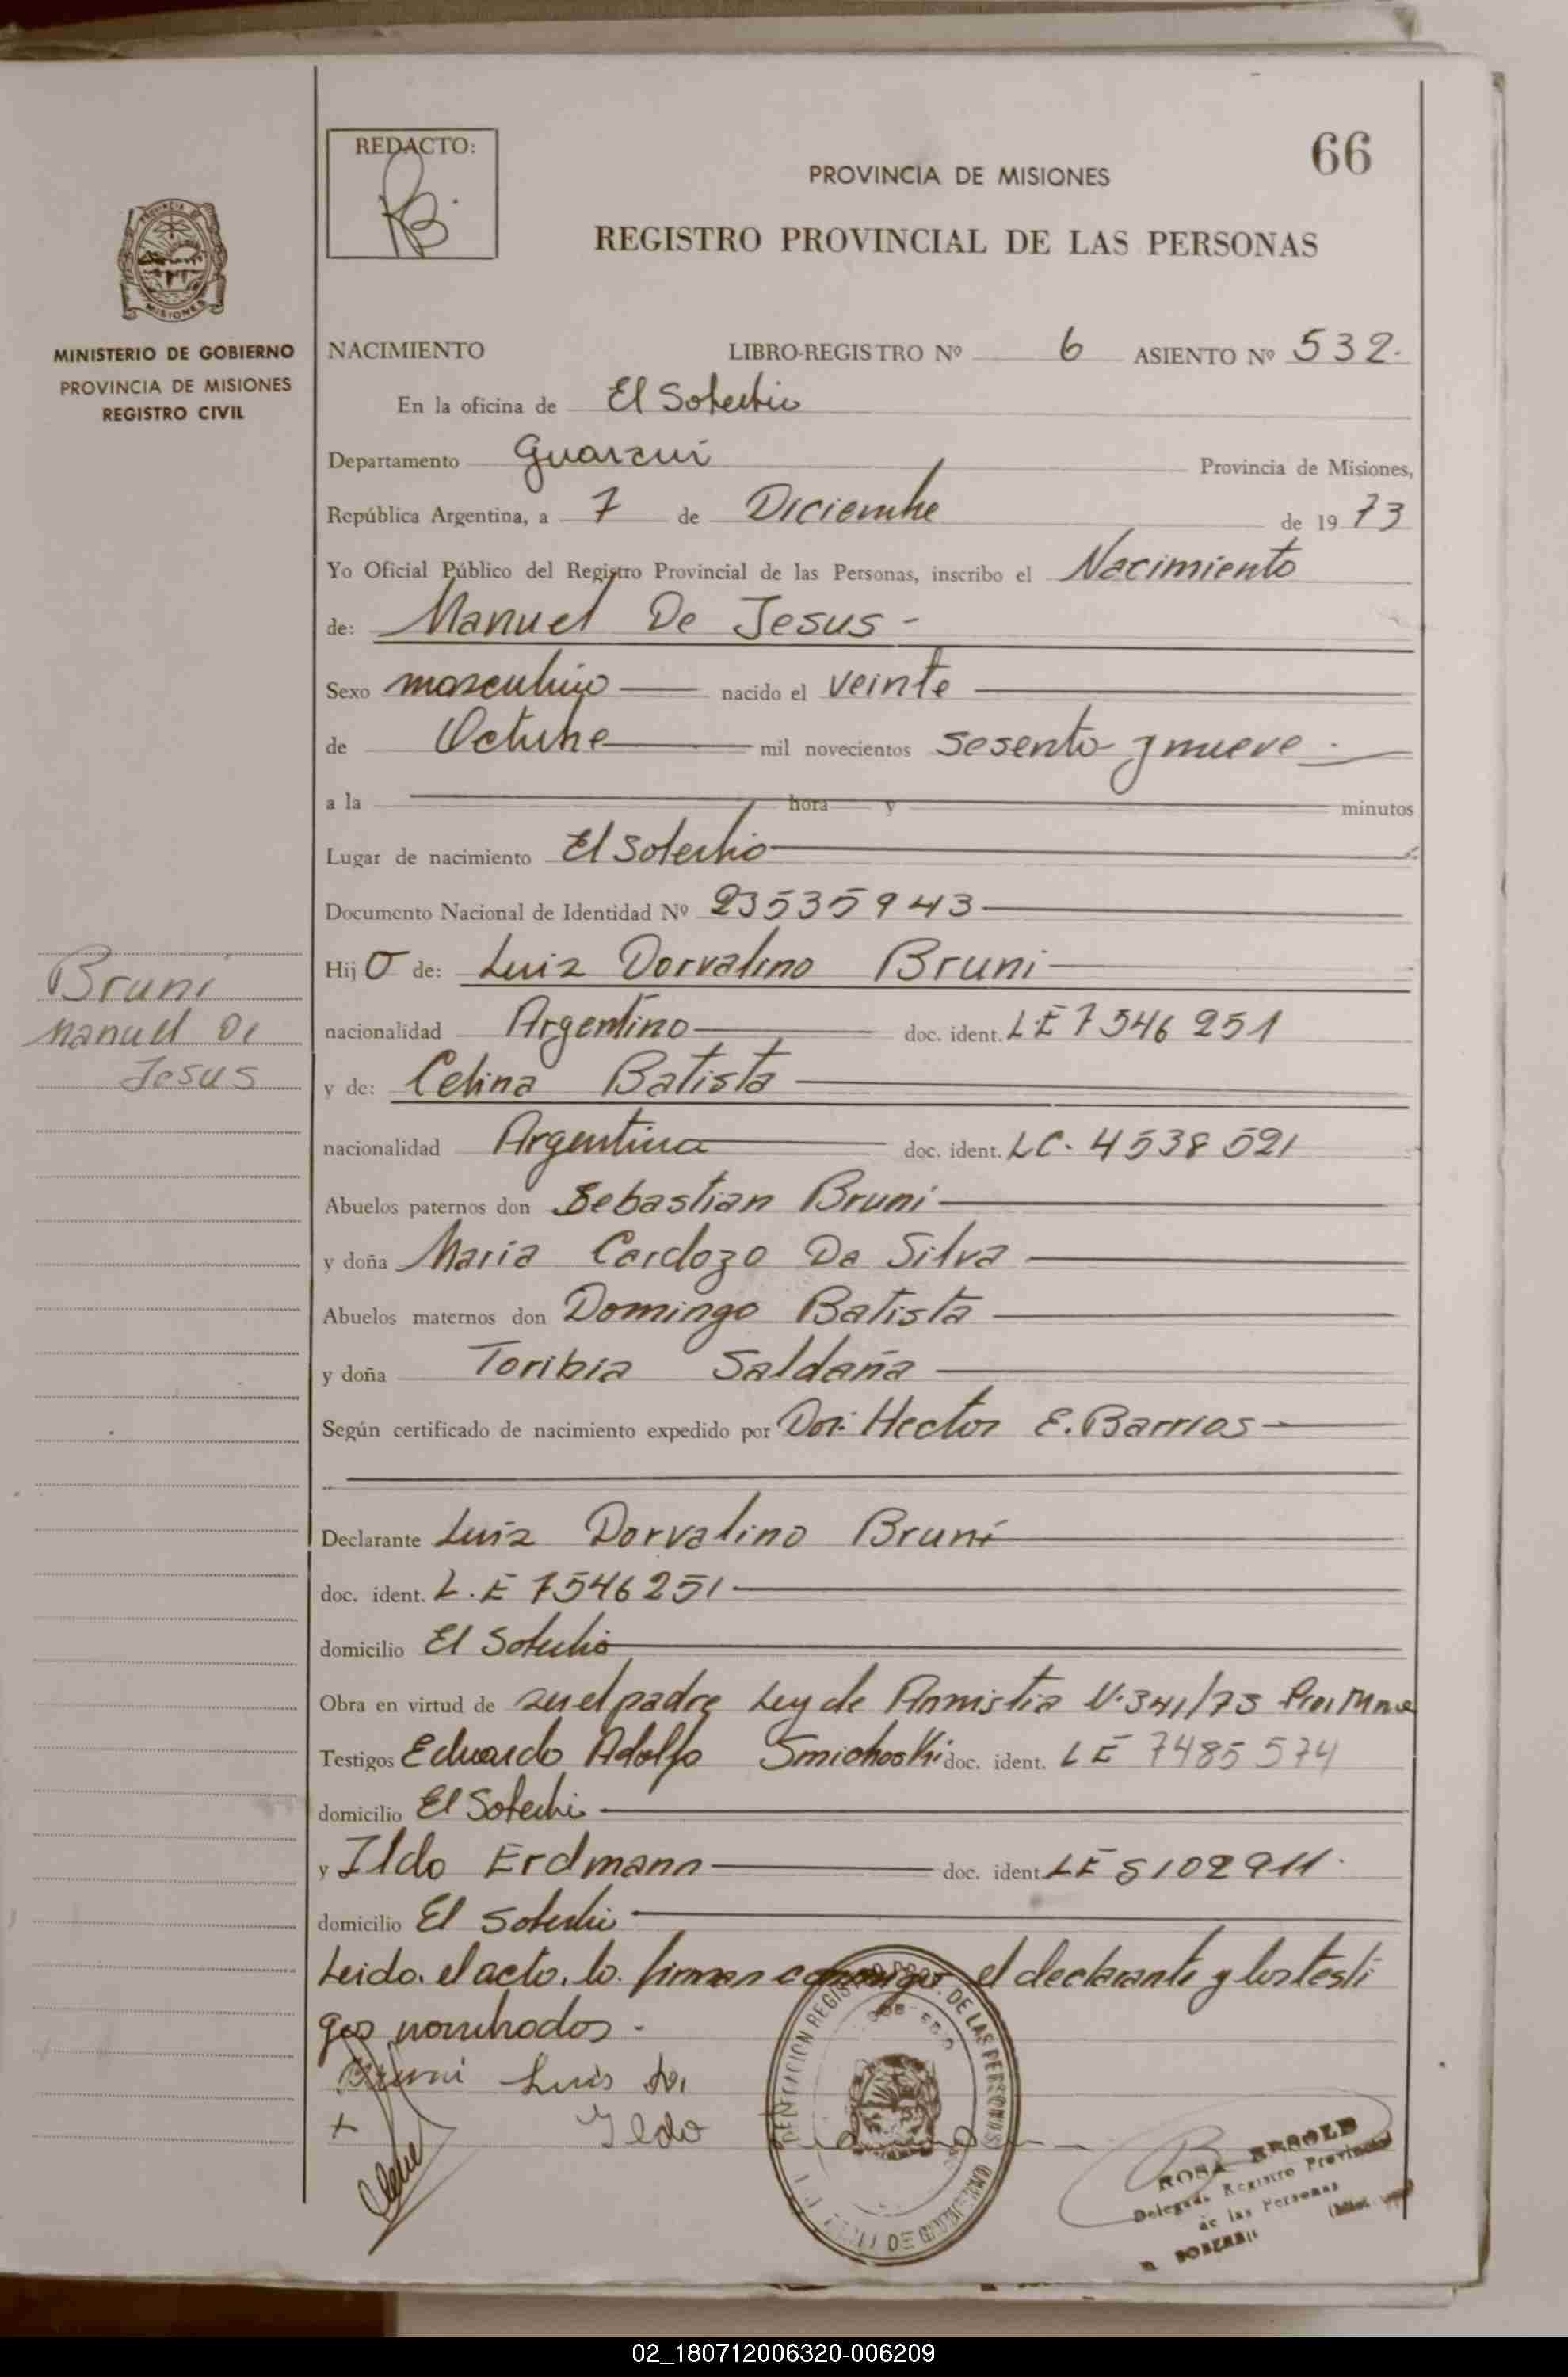 REDACTO:
66
PROVINCIA DE MISIONES
REGISTRO PROVINCIAL DE LAS PERSONAS
MISIONES
MINISTERIO DE GOBIERNO
PROVINCIA DE MISIONES
REGISTRO CIVIL
NACIMIENTO LIBRO-REGISTRO Nº 6 ASIENTO Nº 532.
En la oficina de El Soberbio
Departamento Guarani Provincia de Misiones,
República Argentina, a 7 de Diciembre de 1973
Yo Oficial Público del Registro Provincial de las Personas, inscribo el Nacimiento
de: Manuel De Jesus -
Sexo masculino nacido el veinte
de Octubre mil novecientos sesenta y nueve.
a la hora y minutos
Lugar de nacimiento El Soberbio
Documento Nacional de Identidad Nº 23535943
Hijo de: Luiz Dorvalino Bruni
Bruni
Manuel De
Jesus
nacionalidad Argentino doc. ident. LE 7546251
y de: Celina Batista
nacionalidad Argentina doc. ident. LC. 4538521
Abuelos paternos don Sebastian Bruni
y doña Maria Cardozo Da Silva
Abuelos maternos don Domingo Batista
y doña Toribia Saldaña
Según certificado de nacimiento expedido por Dor. Hector E. Barrios
Declarante Luiz Dorvalino Bruni
doc. ident. L.E 7546251
domicilio El Soberbio
Obra en virtud de ser el padre Ley de Amnistia N. 341/73
Testigos Eduardo Adolfo Smichoski doc. ident. LE 7485574
domicilio El Soberbio
y Ildo Erdmann doc. ident. LE 8102911.
domicilio El Soberbio
Leido. el acto, lo. firman conmigo el declarante y los testi
gos nombrados.
Bruni Luis
Ildo
ROSA BESOLD
Delegada Registro Provincial
de las Personas
02_180712006320-006209